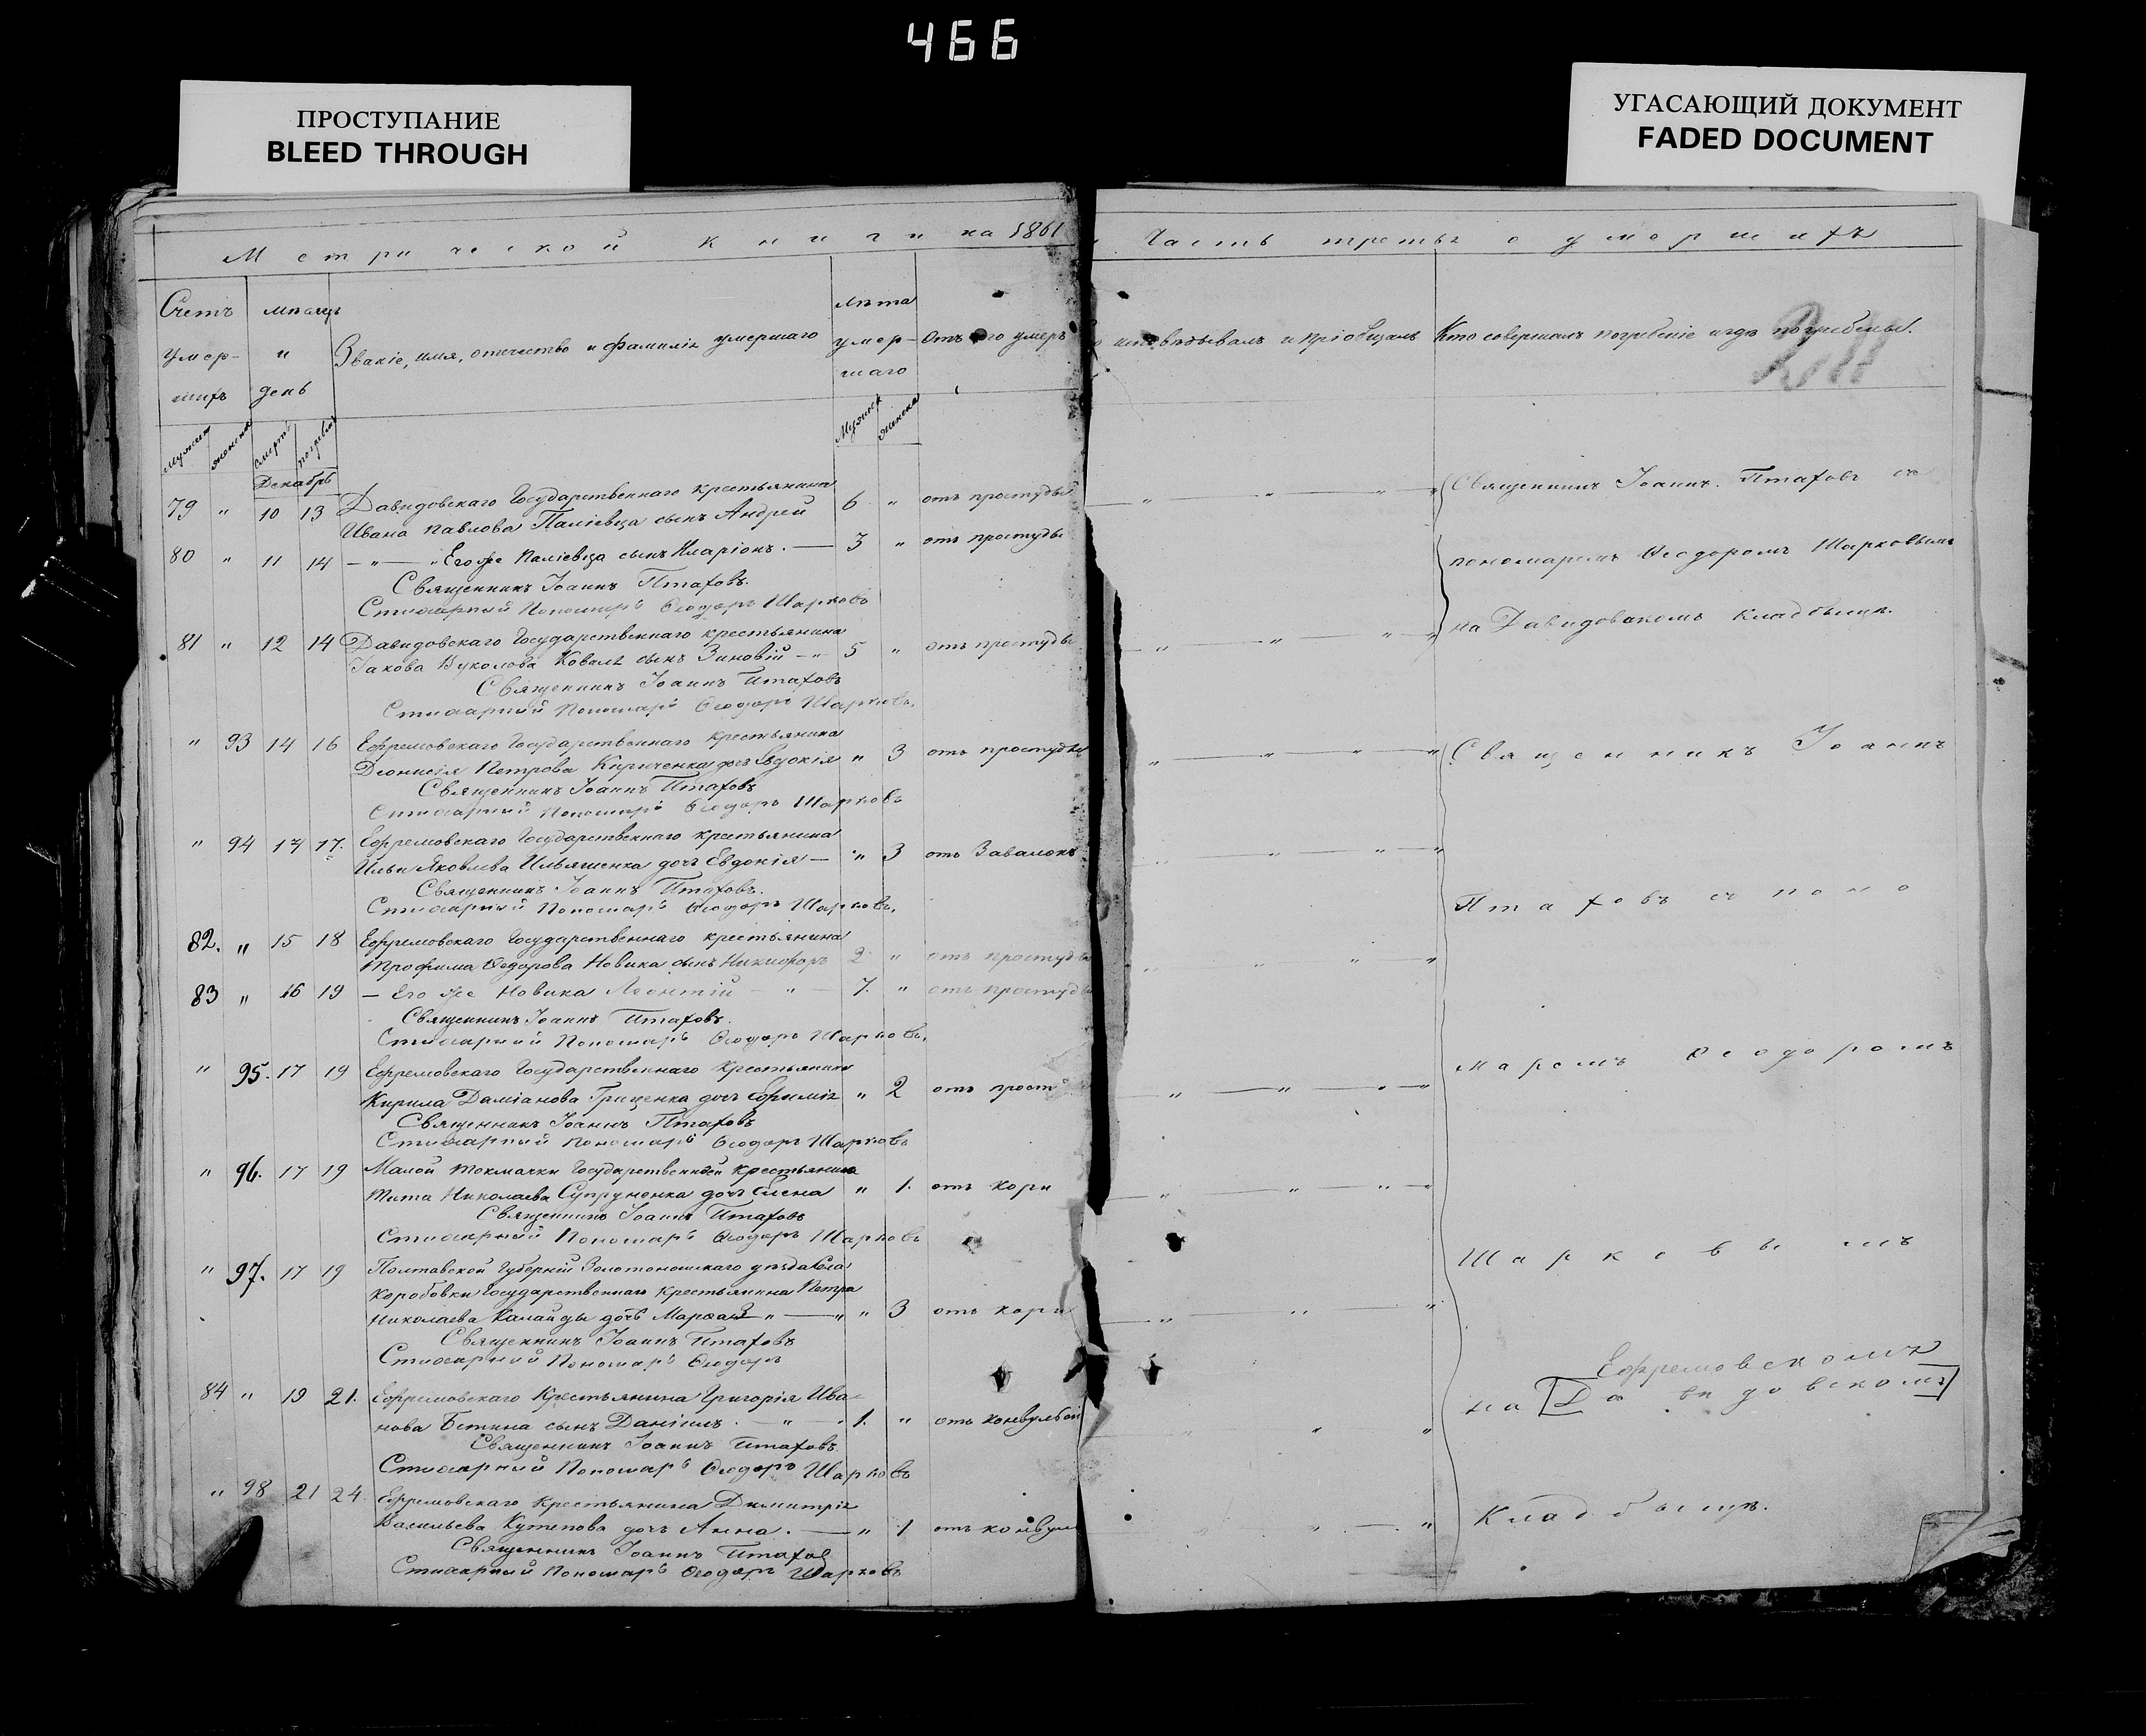 466
ПРОСТУПАНИЕ
BLEED THROUGH
УГАСАЮЩИЙ ДОКУМЕНТ
FADED DOCUMENT
Метрической книги на 1861
Часть третья о умершихъ
Счетъ умер-шихъ
мѣсяцъ и день
Званіе, имя, отечество и фамилія умершаго
лѣта умер-шаго
Отъ чего умеръ
исповѣдывалъ и пріобщалъ
Кто совершалъ погребеніе и гдѣ погребены.
Декабрь
79 " 10 13 Давидовскаго Государственнаго крестьянина
Ивана Павлова Паліевца сынъ Андрей 6 " отъ простуды
80 " 11 14 — " — " Его же Паліевца сынъ Иларіонъ. — 3 " отъ простуды
Священникъ Іоаннъ Птаховъ.
Стихарный Пономарь Ѳеодоръ Шарковъ
81 " 12 14 Давидовскаго Государственнаго крестьянина
Іакова Вуколова Коваля сынъ Зиновій — " 5 " отъ простуды
Священникъ Іоаннъ Птаховъ
Стихарный Пономарь Ѳеодоръ Шарковъ.
" 93 14 16 Ефремовскаго Государственнаго крестьянина
Діонисія Петрова Кириченка дочь Евдокія " 3 отъ простуды
Священникъ Іоаннъ Птаховъ
Стихарный Пономарь Ѳеодоръ Шарковъ
" 94 14 17. Ефремовскаго Государственнаго крестьянина
Ильи Яковлева Ильяшенка дочь Евдокія — " 3 отъ Завалокъ
Священникъ Іоаннъ Птаховъ.
Стихарный Пономарь Ѳеодоръ Шарковъ.
82. " 15 18 Ефремовскаго Государственнаго крестьянина
Трофима Ѳедорова Новика сынъ Никифоръ 2 " отъ простуды
83 " 16 19 — Его же Новика Леонтій — " — 7. " отъ простуды
Священникъ Іоаннъ Птаховъ.
Стихарный Пономарь Ѳеодоръ Шарковъ.
" 95. 17 19 Ефремовскаго Государственнаго Крестьянина
Кирила Даміанова Грищенка дочь Ефимія " 2 отъ прост
Священникъ Іоаннъ Птаховъ
Стихарный Пономарь Ѳеодоръ Шарковъ
" 96. 17 19 Малой Токмачки Государственнаго крестьянина
Тита Николаева Супруненка дочь Елена " 1. отъ кори
Священникъ Іоаннъ Птаховъ
Стихарный Пономарь Ѳеодоръ Шарковъ
" 97. 17 19 Полтавской Губерніи Золотоношскаго уѣзда Села
Коробовки Государственнаго крестьянина Петра
Николаева Калайды дочь Марѳа — " — " " 3 отъ кори
Священникъ Іоаннъ Птаховъ
Стихарный Пономарь Ѳеодоръ
84 " 19 21. Ефремовскаго Крестьянина Григорія Ива-
нова Бетина сынъ Даніилъ. — " — 1. " отъ конвульсій
Священникъ Іоаннъ Птаховъ.
Стихарный Пономарь Ѳеодоръ Шарковъ
" 98 21 24. Ефремовскаго Крестьянина Димитрія
Васильева Кутепова дочь Анна. — " 1 отъ конвуль
Священникъ Іоаннъ Птахов
Стихарный Пономарь Ѳеодоръ Шарковъ
Священникъ Іоаннъ. Птаховъ съ
пономаремъ Ѳеодоромъ Шарковымъ
на Давидовскомъ кладбищѣ.
Священникъ Іоаннъ
Птаховъ съ поно
маремъ Ѳеодоромъ
Шарковымъ
Ефремовскомъ
на Давидовскомъ
Кладбищѣ.